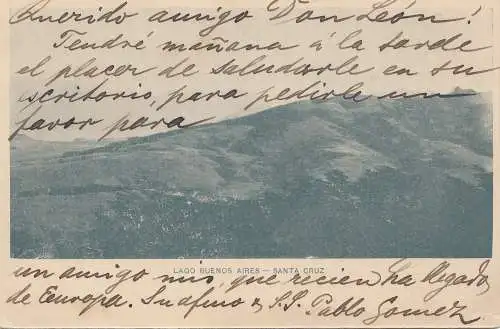 Querido amigo Don León!
Tendré mañana á la tarde
el placer de saludarle en su
escritorio, para pedirle un
favor para
LAGO BUENOS AIRES — SANTA CRUZ
un amigo mio, que recien ha llegado
de Europa. Su afmo S.S. Pablo Gomez